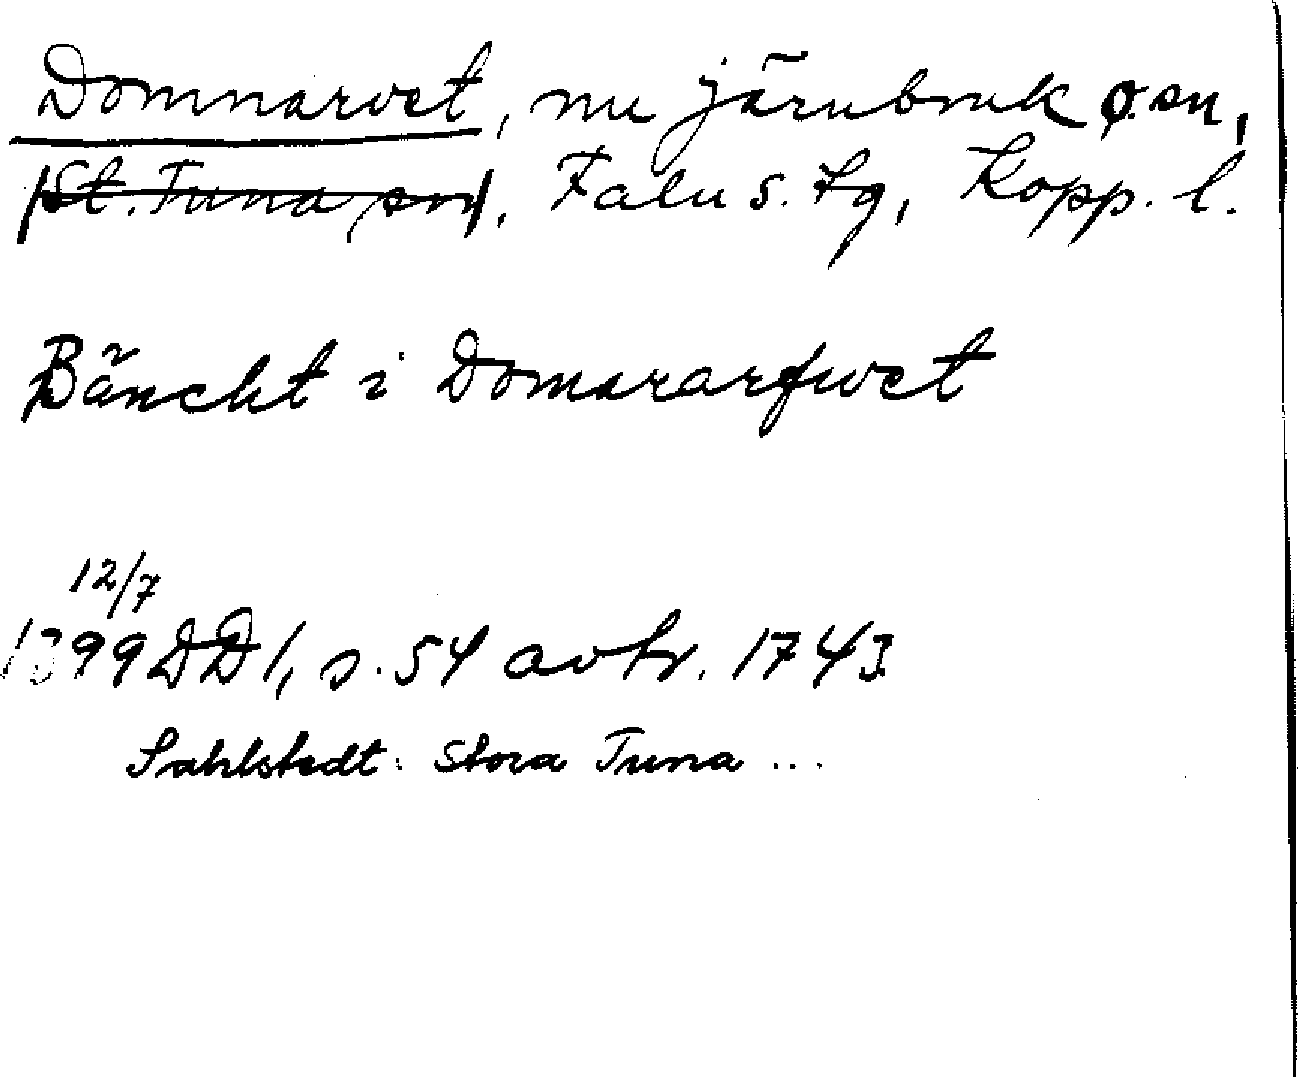 Domnarvet, nu järnbruk o. sn,
St. Tuna sn, Falu s. tg, Kopp. l.
Bäncht i Domararfwet
12/7
1399 DD 1, s. 54 avkr. 1743
Sahlstedt: Stora Tuna ...